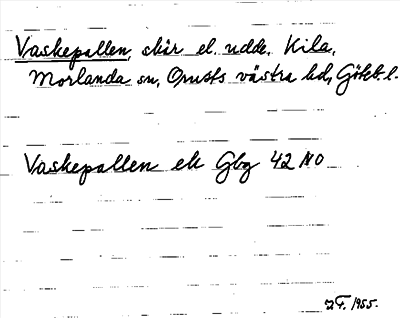 Vaskepallen, skär el. udde, Kila,
Morlanda sn, Orusts västra hd, Göteb. l.
Vaskepallen ek Gbg 42 NO
1955.